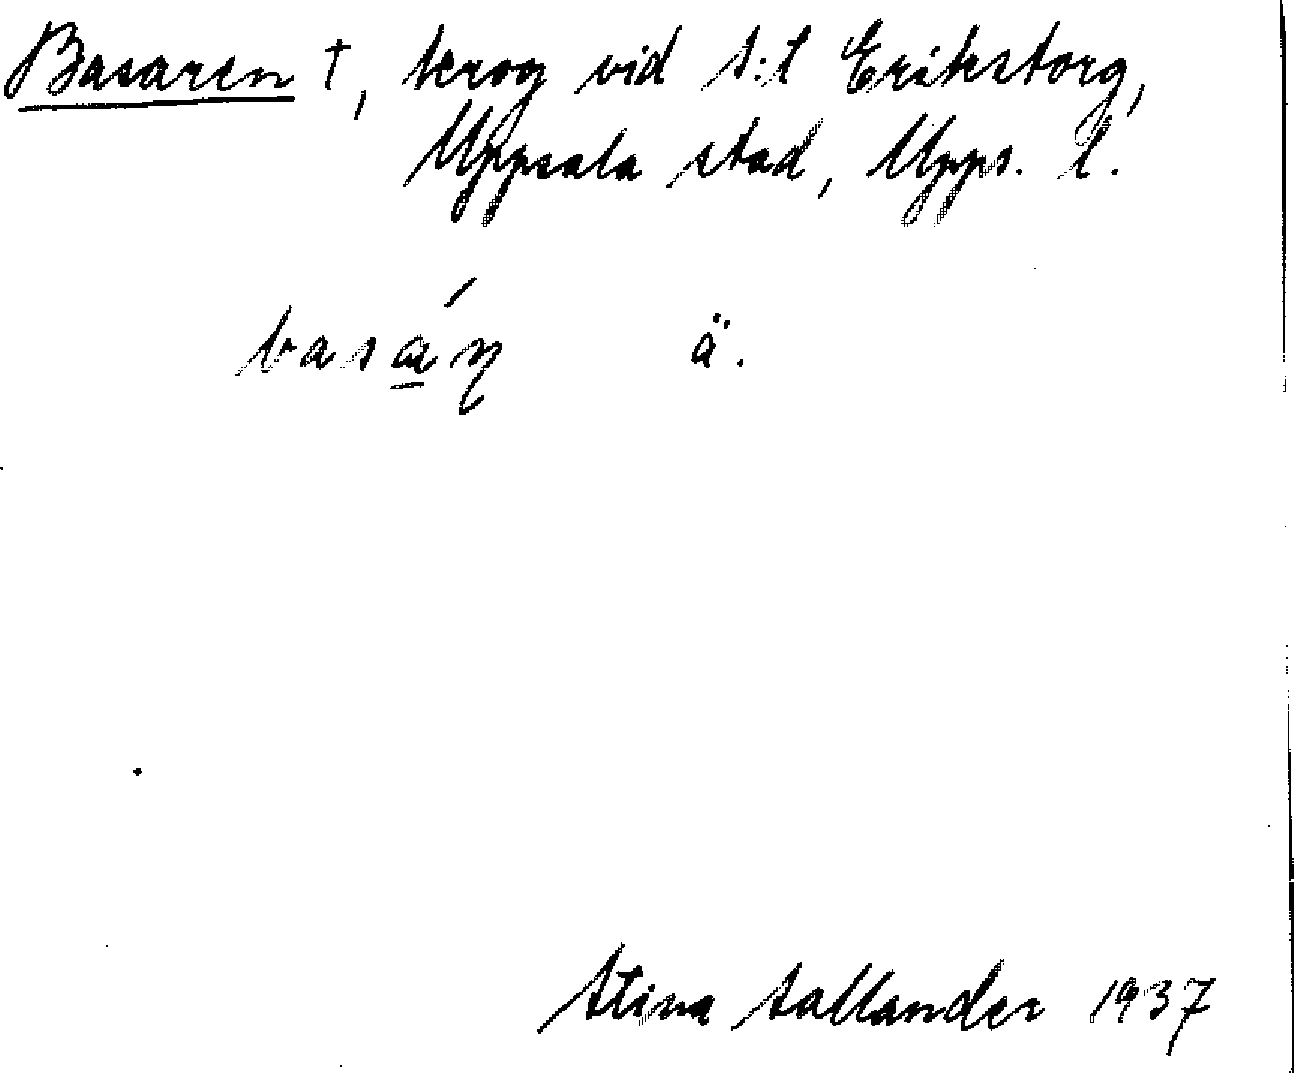 Basaren †, krog vid S:t Erikstorg,
Uppsala stad, Upps. l.
basa̲´ꞥ ä.
Stina Sallander 1937